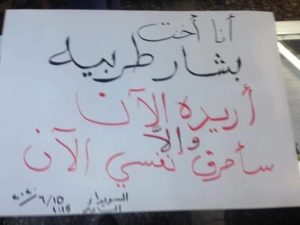 أنا أخت
بشار طربيه
أريده الآن
وإلا
سأحرق نفسي الآن
السويداء